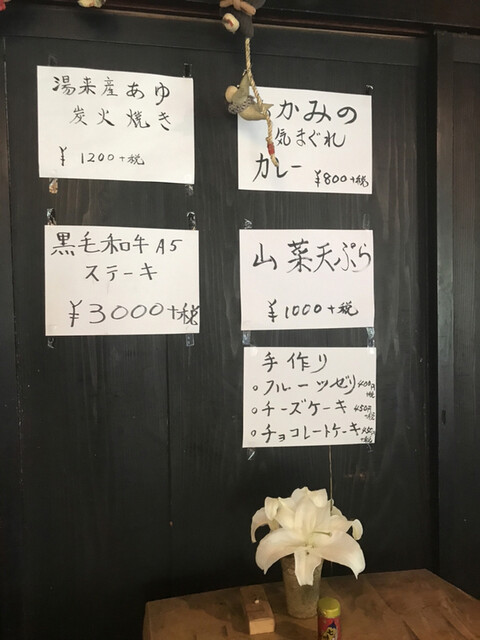 湯来産あゆ
炭火焼き
¥1200+税
かみの
気まぐれ
カレー
¥800+税
黒毛和牛A5
ステーキ
¥3000+税
山菜天ぷら
¥1000+税
手作り
○フルーツゼリー400円+税
○チーズケーキ450円+税
○チョコレートケーキ450円+税